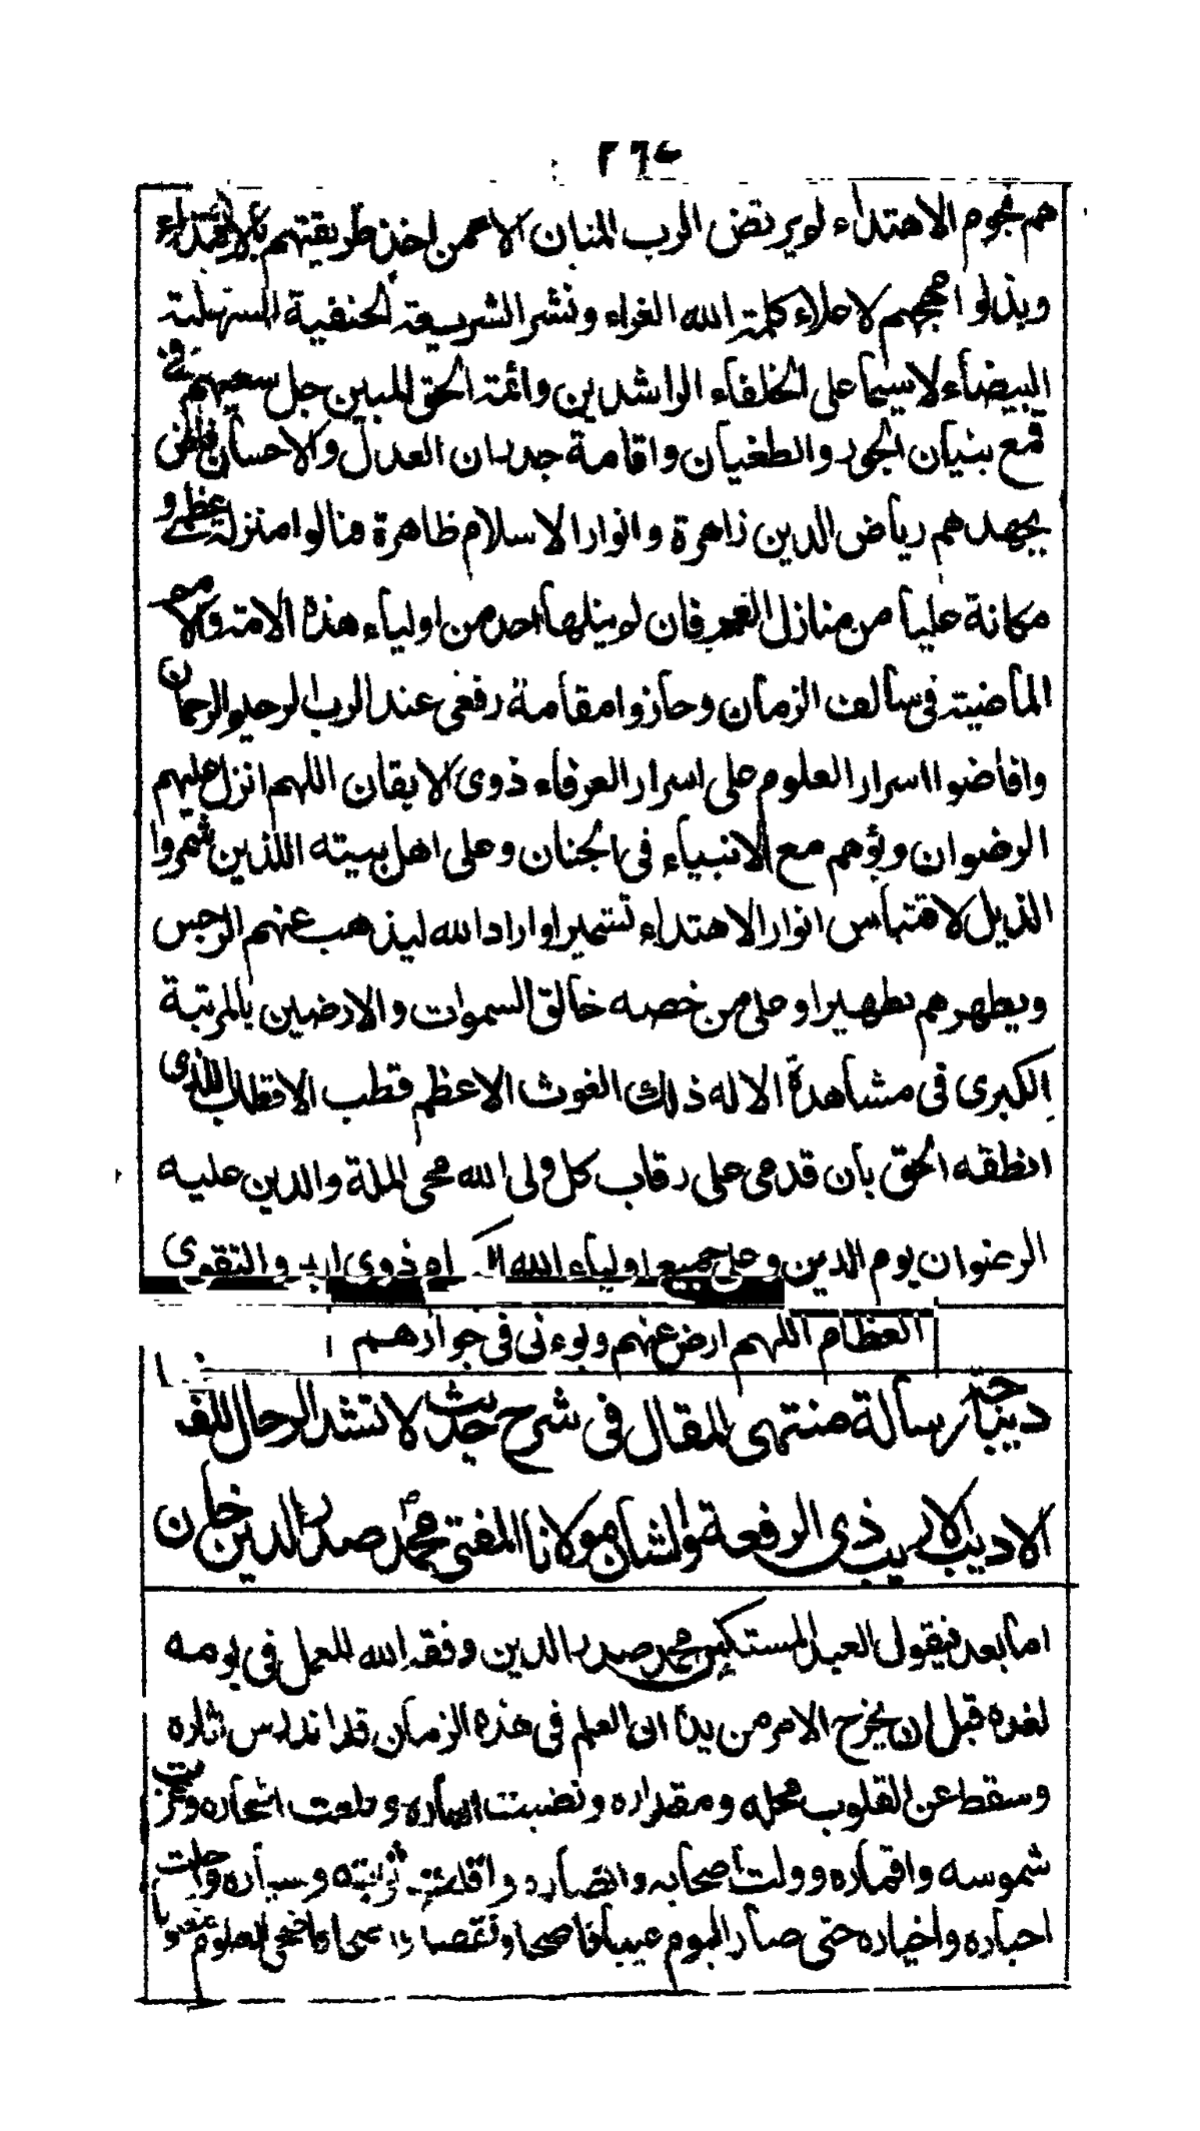 ٢٦٤
هم نجوم الاهتداء لم يرتض الرب المنان الا عمن اخذ طريقتهم بالاقتداء
وبذلوا مهجهم لاعلاء كلمة الله الغراء ونشر الشريعة الحنفية السهلة
البيضاء لاسيما على الخلفاء الراشدين وائمة الحق المبين جل سعيهم في
قمع بنيان الجور والطغيان واقامة جدران العدل والاحسان
بجهدهم رياض الدين زاهرة وانوار الاسلام ظاهرة فنالوا منزلة عظمى و
مكانة عليا من منازل العرفان لم ينلها احد من اولياء هذه الامة والامم
الماضية في سالف الزمان وحازوا مقامة رفعى عند الرب الرحيم الرحمان
وافاضوا اسرار العلوم على اسرار العرفاء ذوى الايقان اللهم انزل عليهم
الرضوان وبؤهم مع الانبياء فى الجنان وعلى اهل بيته اللذين شمروا
الذيل لاقتباس انوار الاهتداء تشميرا و اراد الله ليذهب عنهم الرجس
ويطهرهم تطهيرا وعلى من خصه خالق السموات والارضين بالمرتبة
الكبرى فى مشاهدة الاله ذلك الغوث الاعظم قطب الاقطاب الذى
انطقه الحق بان قدمى على رقاب كل ولى الله محى الملة والدين عليه
الرضوان يوم الدين وعلى جميع اولياء الله الكرام ذوى والتقوى
العظام اللهم ارض عنهم وبوءنى فى جوارهم
ديباجة رسالة منتهى المقال فى شرح حديث لا تشد الرحال للف
الاديب الاريب ذى الرفعة والشان مولانا المفتى محمد صدر الدين خان
اما بعد فيقول العبد المستكين محمد صدر الدين وفقه الله للعمل فى يومه
لغده قبل ان يخرج الامر من يده ان العلم فى هذه الزمان قد اندرس اثاره
وسقط عن القلوب محله ومقداره ونضبت انهاره و اشجاره وغربت
شموسه واقماره وولت اصحابه وانصاره و وسياره وماتت
احباره واخياره حتى صار اليوم عيبا فاضحا ونقصا العلوم